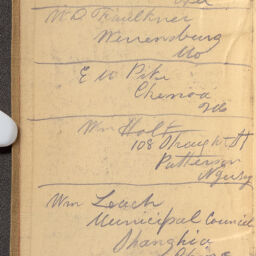 W. D. Faulkner
Warrensburg
Mo
E W Pike
Chenoa
Ills
Wm Holt
108 Straight St
Patterson
N Jersy
Wm Leach
Municipal Council
Shanghia
China